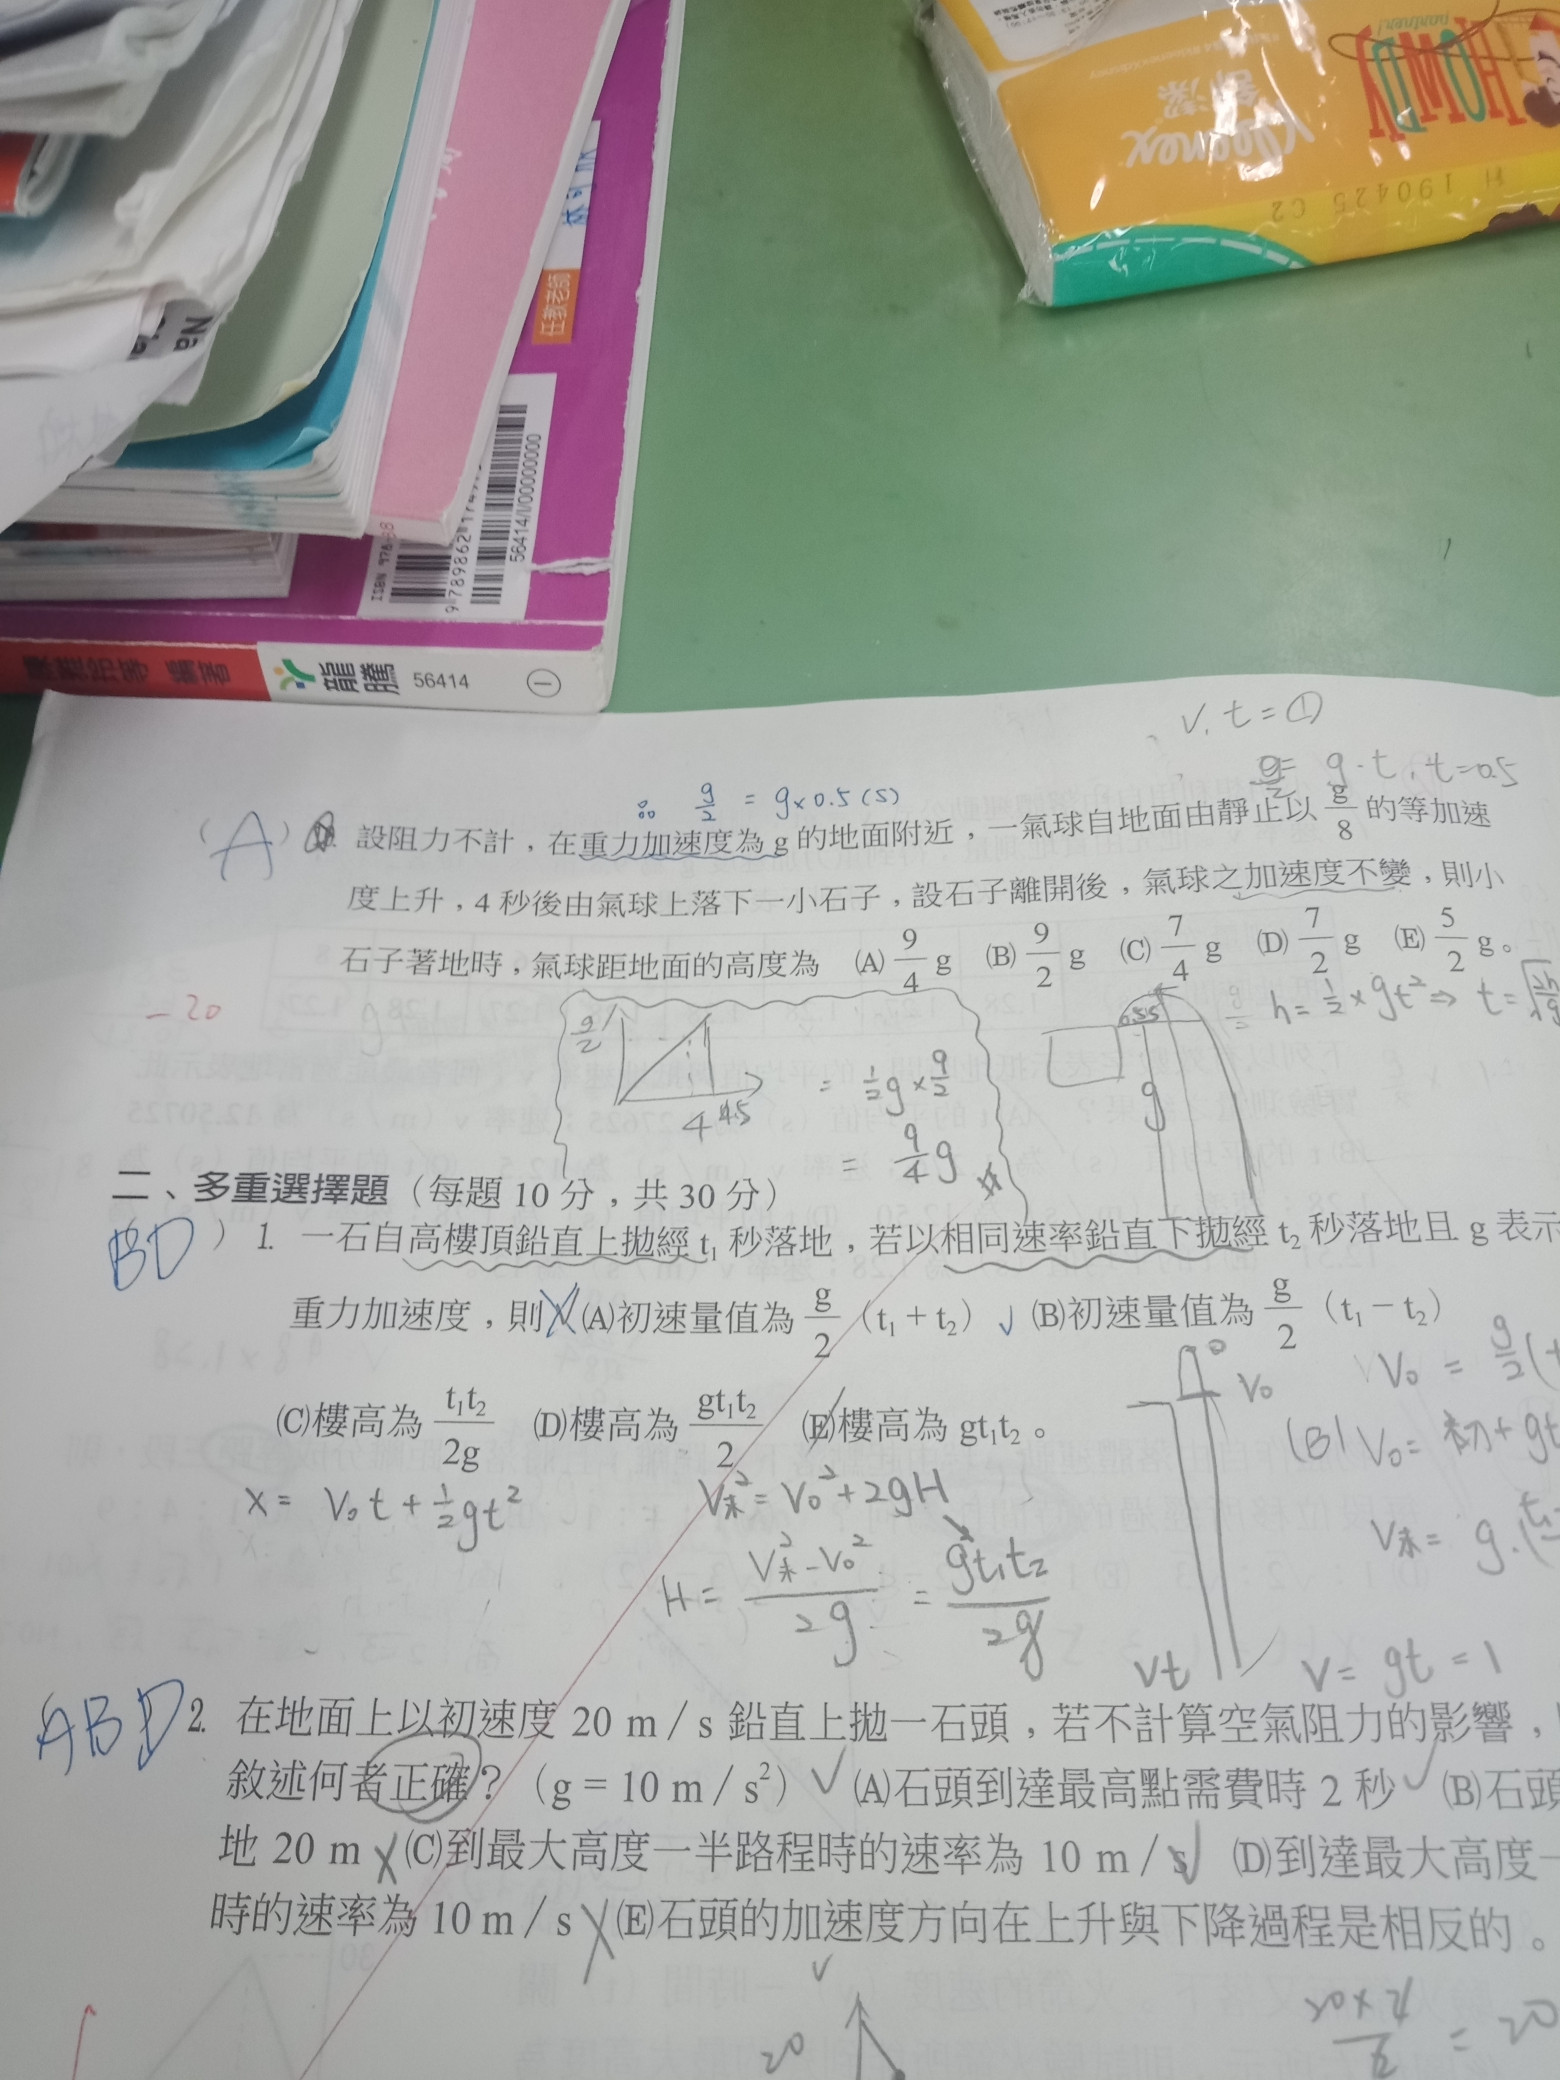 HOMDY
partner!
Kleenex
舒潔
H 190425 C2
任教老師
Na
ISBN 978-
56414/I/00000000
龍騰 56414 ①
v. t = ①
g/2 = g·t, t=0.5
∴ g/2 = g×0.5 (s)
(A) 設阻力不計，在重力加速度為 g 的地面附近，一氣球自地面由靜止以 g/8 的等加速
度上升，4 秒後由氣球上落下一小石子，設石子離開後，氣球之加速度不變，則小
石子著地時，氣球距地面的高度為 (A) 9/4 g (B) 9/2 g (C) 7/4 g (D) 7/2 g (E) 5/2 g。
-20
h = 1/2 × gt² ⇒ t = √2h/g
g/2
4 4.5
= 1/2 g × 9/2
= 9/4 g
g
二、多重選擇題（每題 10 分，共 30 分）
BD ) 1. 一石自高樓頂鉛直上拋經 t₁ 秒落地，若以相同速率鉛直下拋經 t₂ 秒落地且 g 表示
重力加速度，則 (A)初速量值為 g/2 （t₁ + t₂） (B)初速量值為 g/2 （t₁ − t₂）
(C)樓高為 t₁t₂/2g (D)樓高為 gt₁t₂/2 (E)樓高為 gt₁t₂。
V₀
V₀ = g/2 (
(B) V₀ = 初 + gt
V末 = g·(
x = V₀t + 1/2 gt²
V末² = V₀² + 2gH
H = V末² - V₀² / 2g = g²t₁t₂ / 2g
Vt
V = gt = 1
ABD 2. 在地面上以初速度 20 m／s 鉛直上拋一石頭，若不計算空氣阻力的影響，
敘述何者正確？（g = 10 m／s²） (A)石頭到達最高點需費時 2 秒 (B)石頭
地 20 m (C)到最大高度一半路程時的速率為 10 m／s (D)到達最大高度一
時的速率為 10 m／s (E)石頭的加速度方向在上升與下降過程是相反的。
V
20
20×2/2 = 20